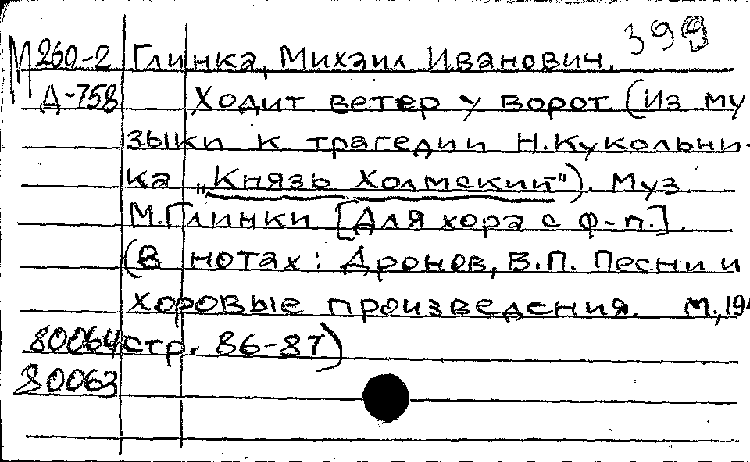 399
М260-2 Глинка, Михаил Иванович.
Д-758 Ходит ветер у ворот (Из му
зыки к трагедии Н.Кукольни-
ка „Князь Холмский"). Муз.
М.Глинки [Для хора с ф-п.].
(В нотах: Дронов, В.П. Песни и
хоровые произведения. М,194
80064 стр. 86-87)
80063